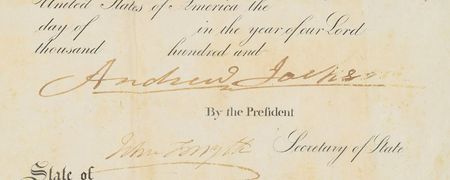 United States of America the
day of in the year of our Lord
thousand hundred and
Andrew Jackson
By the Prefident
John Forsyth Secretary of State
State of